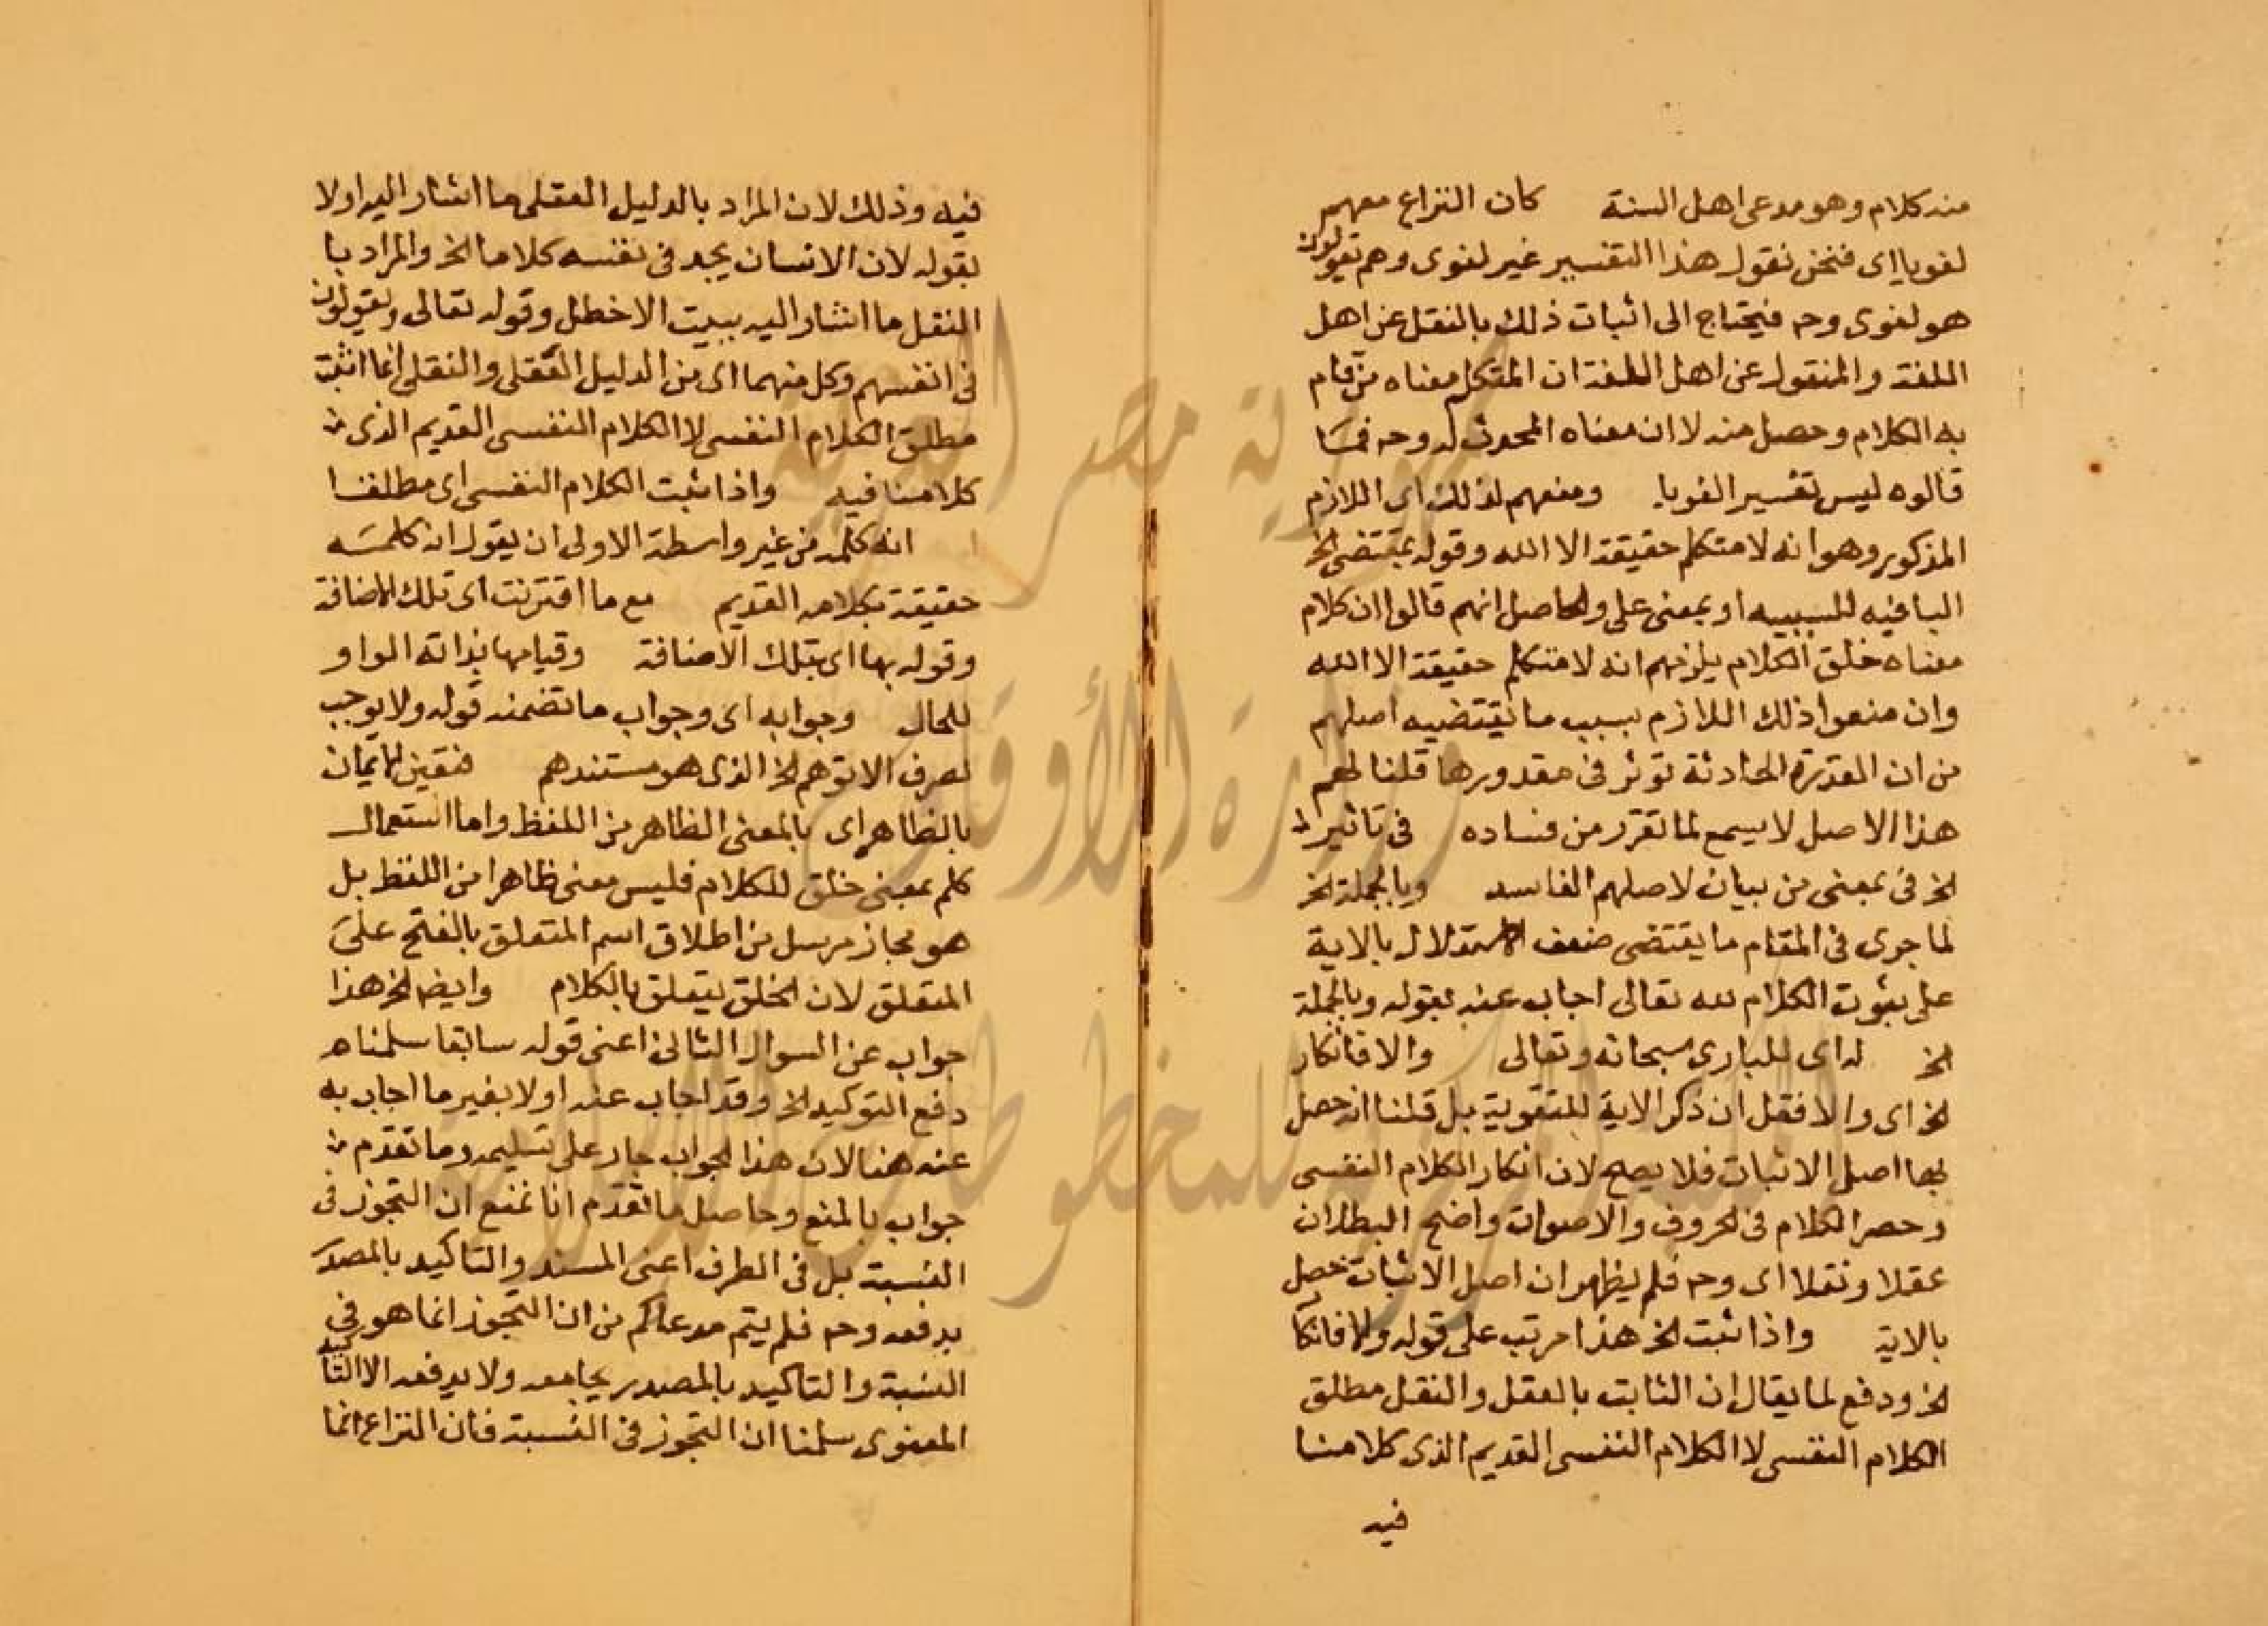 منه كلام وهو مدعى اهل السنة كان النزاع معهم
لغويا اى فنحن نقول هذا التفسير غير لغوى وهم يقولون
هو لغوى وح فيحتاج الى اثبات ذلك بالنقل عن اهل
اللغة والمنقول عن اهل اللغة ان المتكلم معناه من قام
به الكلام وحصل منه لا ان معناه المحدث له وح فما
قالوه ليس تفسيرا لغويا ومنعهم لذلك اى اللازم
المذكور وهو انه لا متكلم حقيقة الا الله وقوله بمقتضى الخ
البا فيه للسببيه او بمعنى على والحاصل انهم قالوا ان كلام
معناه خلق الكلام يلزمهم انه لا متكلم حقيقة الا الله
وان منعوا ذلك اللازم بسبب ما يقتضيه اصلهم
من ان القدرة الحادثة توثر فى مقدورها قلنا لهم
هذا الاصل لا يسمع لما تقرر من فساده فى تاثير
الخ فى بمعنى من بيان لاصلهم الفاسد وبالجملة الخ
لما جرى فى المقام ما يقتضى ضعف الاستدلال بالاية
على ثبوت الكلام لله تعالى اجاب عنه بقوله وبالجملة
الخ له اى للبارى سبحانه وتعالى والا فانكار
الخ اى والا فقل ان ذكر الاية للتقوية بل قلنا انه حصل
بها اصل الاثبات فلا يصح لان انكار الكلام النفسى
وحصر الكلام فى الحروف والاصوات واضح البطلان
عقلا ونقلا اى وح فلم يظهر ان اصل الاثبات حصل
بالاية واذا ثبت الخ هذا مرتب على قوله والا فانكار
الخ ودفع لما يقال ان الثابت بالعقل والنقل مطلق
الكلام النفسى لا الكلام النفسى القديم الذى كلامنا
فيه
فيه وذلك لان المراد بالدليل العقلى ما اشار اليه اولا
بقوله لان الانسان يجد فى نفسه كلاما الخ والمراد با
النقل ما اشار اليه ببيت الاخطل وقوله تعالى ويقولون
فى انفسهم وكل منهما اى من الدليل العقلى والنقلى انما اثبت
مطلق الكلام النفسى لا الكلام النفسى القديم الذى
كلامنا فيه واذا ثبت الكلام النفسى اى مطلقا
انه كلمه من غير واسطة الاولى ان يقول انه كلمه
حقيقة بكلامه القديم مع ما اقترنت اى تلك الاضافة
وقوله بها اى بتلك الاضافة وقيامها بذاته الواو
للحال وجوابه اى وجواب ما تضمنه قوله ولا يوجب
لصرف الا توهم الخ الذى هو مستندهم فتعين الايمان
بالظاهر اى بالمعنى الظاهر من اللفظ واما استعمال
كلم بمعنى خلق الكلام فليس معنى ظاهرا من اللفظ بل
هو مجاز مرسل من اطلاق اسم المتعلق بالفتح على
المتعلق لان الخلق يتعلق بالكلام وايضا الخ هذا
جواب عن السوال الثانى اعنى قوله سابقا سلمناه
دفع التوكيد الخ وقد اجاب عنه اولا بغير ما اجاب به
عنه هنا لان هذا الجواب جار على تسليمه وما تقدم
جواب بالمنع وحاصل ما تقدم انا نمنع ان التجوز فى
النسبة بل فى الطرف اعنى المسند والتاكيد بالمصدر
يدفعه وح فلم يتم مدعاكم من ان التجوز انما هو فى
النسبة والتاكيد بالمصدر يجامعه ولا يدفعه الا التاكيد
المعنوى سلمنا ان التجوز فى النسبة فان النزاع انما